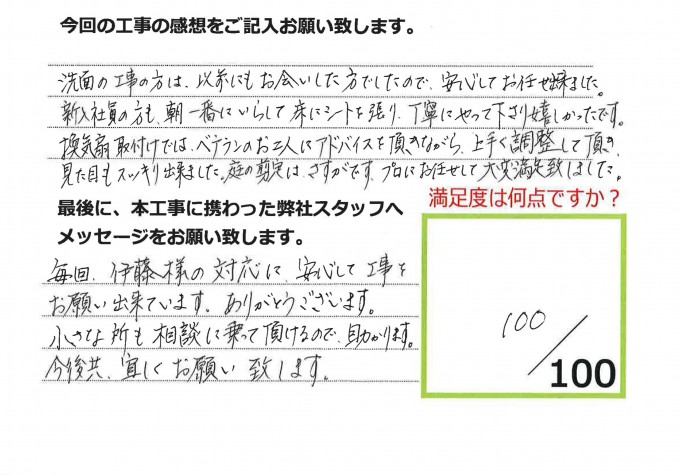 今回の工事の感想をご記入お願い致します。
洗面の工事の方は、以前にもお会いした方でしたので、安心してお任せ出来ました。
新入社員の方も、朝一番にいらして床にシートを張り、丁寧にやって下さり嬉しかったです。
換気扇取付けでは、ベテランのお二人にアドバイスを頂きながら、上手く調整して頂き
見た目もスッキリ出来ました。庭の剪定は、さすがです、プロにお任せして大変満足致しました。
最後に、本工事に携わった弊社スタッフへ
メッセージをお願い致します。
満足度は何点ですか？
毎回、伊藤様の対応に、安心して工事を
お願い出来ています。ありがとうございます。
小さな所も相談に乗って頂けるので、助かります。
今後共、宜しくお願い致します。
100
100